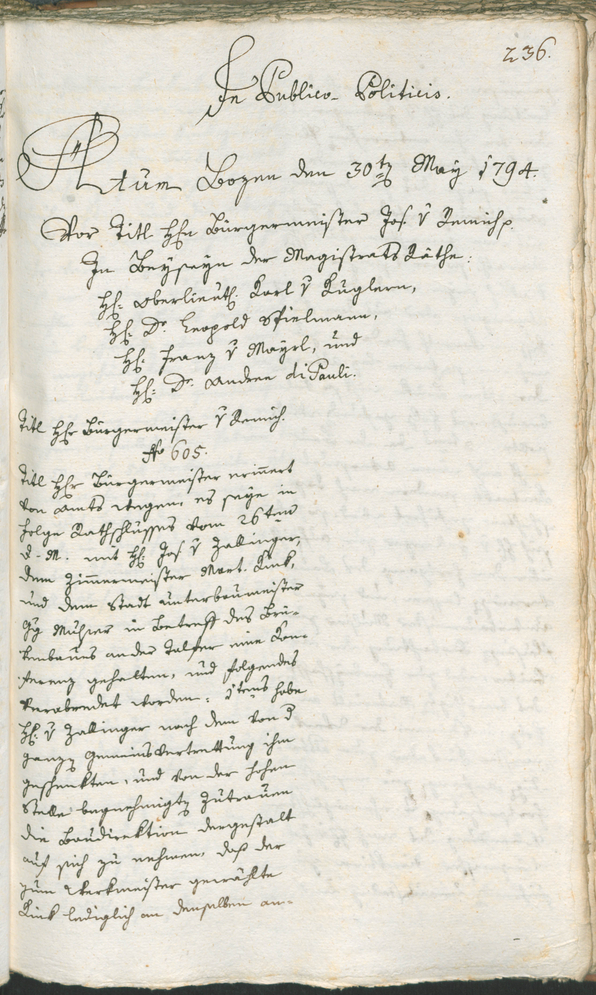 236.
In Publico-Politicis.
Actum Bozen den 30ten May 1794.
Vor Titl Hhn Bürgermeister Jos. v Remich p.
In Beyseyn der Magistrats Räthe:
HH: Oberlieut: Karl v Kuglern,
HH: Dr. Leopold Spielmann,
HH: Franz v Mayrl, und
HH: Dr. Andree di Pauli.
Titl Hhr Bürgermeister v Remich.
No 605.
Titl Hhr Bürgermeister erinnert
von Amts wegen, es seye in
Folge Rathschlusses vom 26ten
d. M. mit HH: Jos v Zallinger,
dem Zimmermeister Mart. Kink,
und dem Stadt Unterbaumeister
Gg Muhser in Betreff des Brü-
kenbaues an der Talfer eine Kon-
ferenz gehalten, und folgendes
verabredet worden: 1tens habe
HH: v Zallinger nach dem von d
ganzen Gemeinsvertrettung ihm
geschenkten, und von der hohen
Stelle begnehmigten Zutrauen
die Baudirektion dergestalt
auf sich zu nehmen, daß der
zum Werkmeister gewählte
Kink lediglich an denselben an-